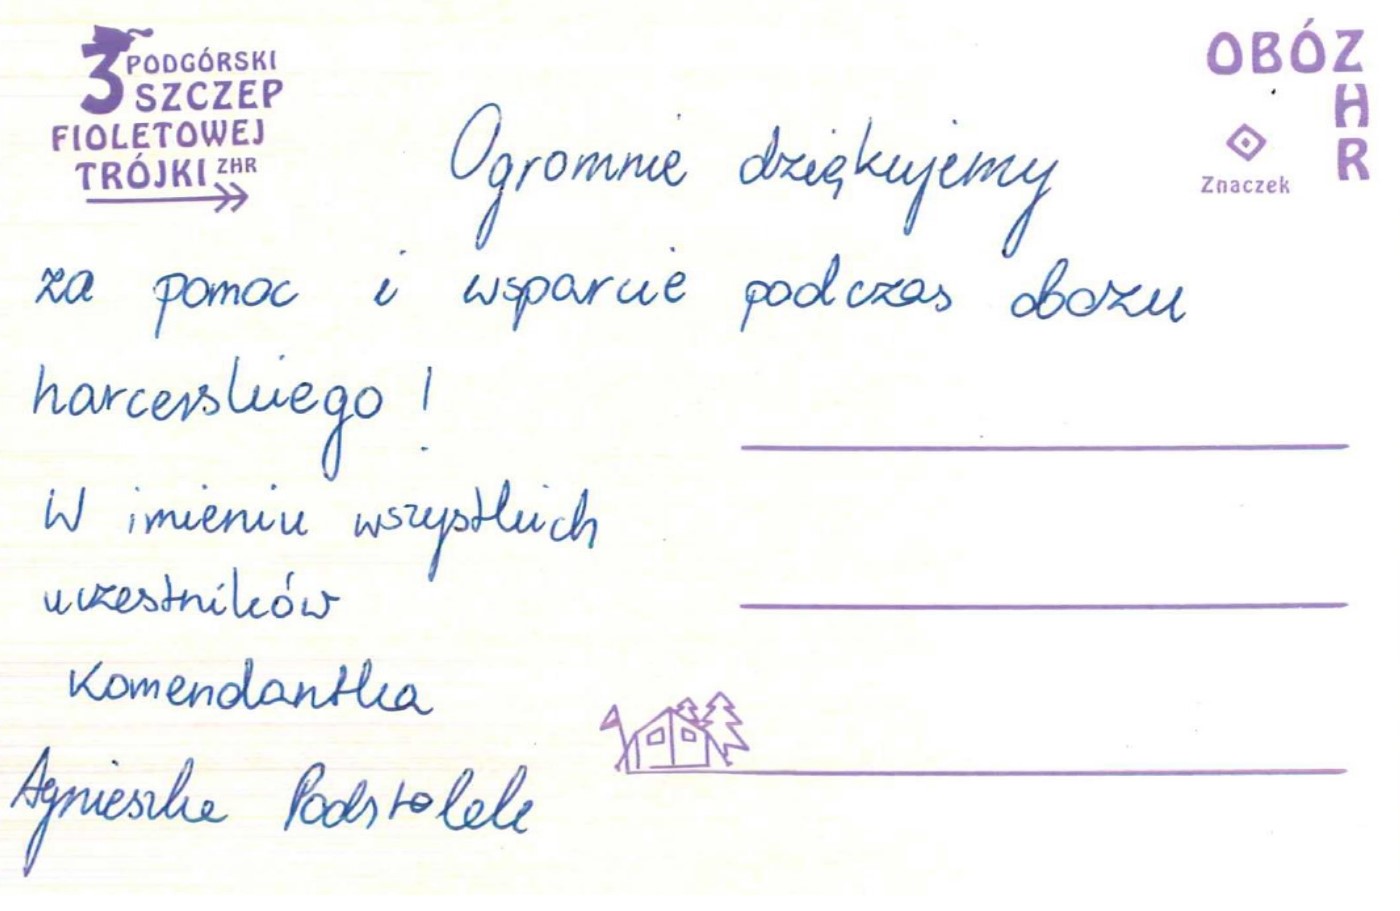 3 PODGÓRSKI
SZCZEP
FIOLETOWEJ
TRÓJKI ZHR
OBÓZ
HR
Znaczek
Ogromnie dziękujemy
za pomoc i wsparcie podczas obozu
harcerskiego!
W imieniu wszystkich
uczestników
Komendantka
Agnieszka